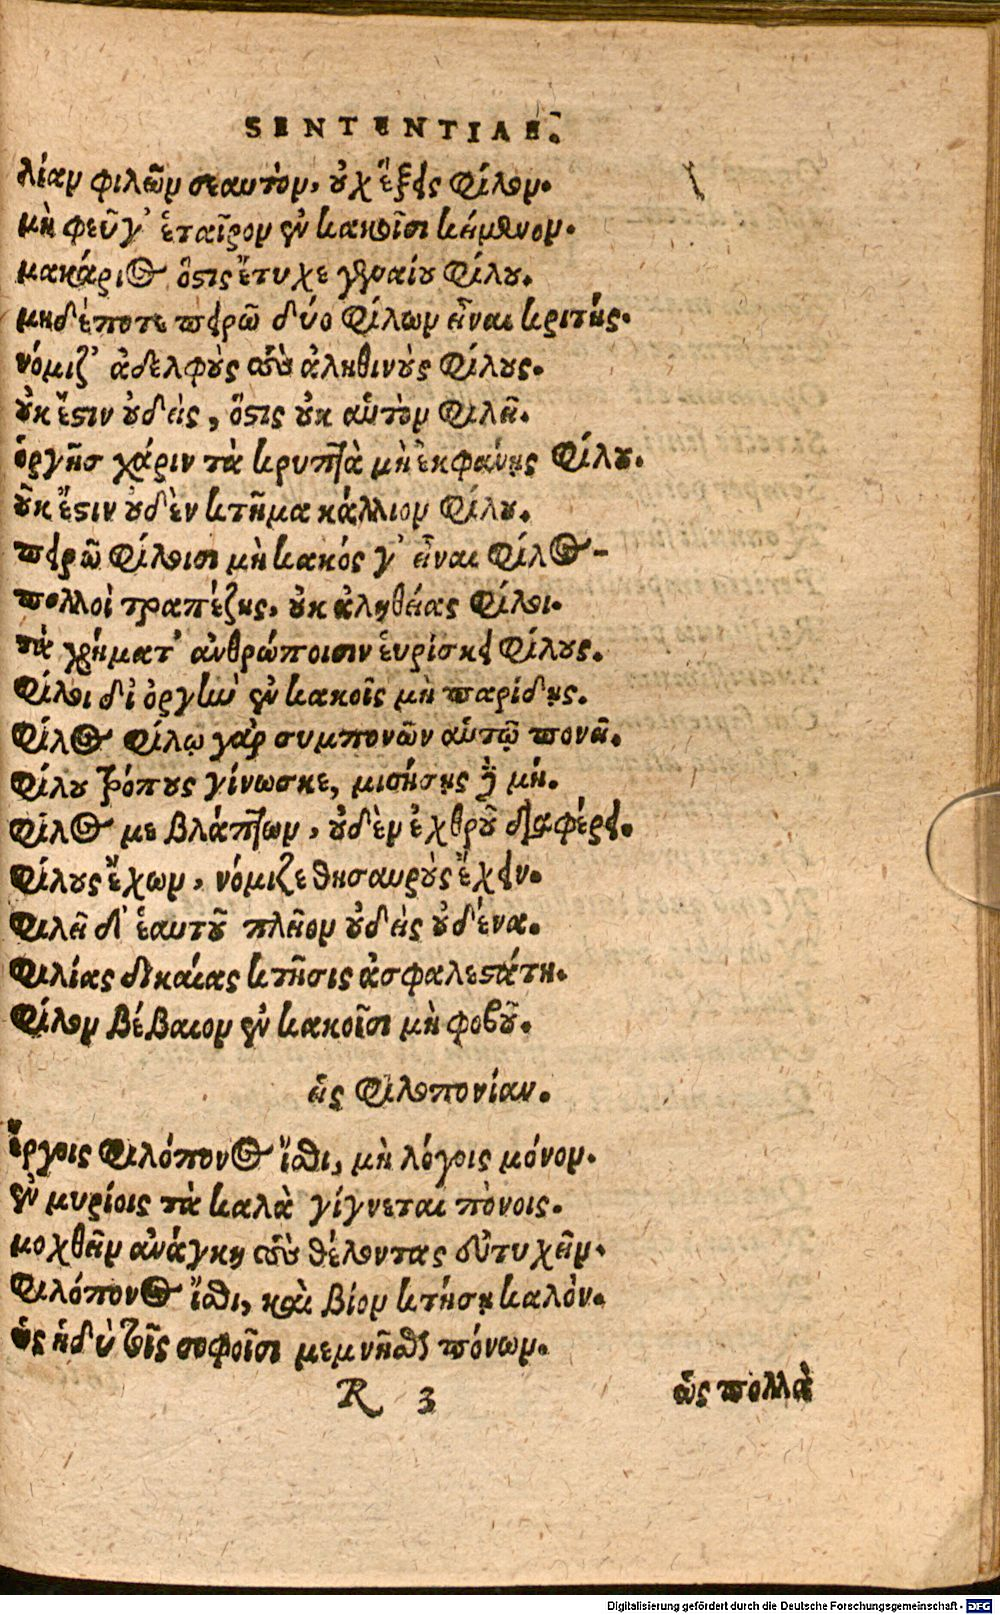 SENTENTIAE.
λίαν φιλῶν σεαυτὸν, οὐχ ἕξεις φίλον.
μὴ φεῦγ' ἑταῖρον ἐν κακοῖσι κείμενον.
μακάριος ὅστις ἔτυχε γενναίου φίλου.
μηδέποτε πειρῶ δύο φίλων εἶναι κριτής.
νόμιζ' ἀδελφοὺς τοὺς ἀληθινοὺς φίλους.
οὐκ ἔστιν οὐδεὶς, ὅστις οὐκ αὑτὸν φιλεῖ.
ὀργῆς χάριν τὰ κρυπτὰ μὴ ἐκφάνῃς φίλου.
οὐκ ἔστιν οὐδὲν κτῆμα κάλλιον φίλου.
πειρῶ φίλοισι μὴ κακός γ' εἶναι φίλος-
πολλοὶ τραπέζης, οὐκ ἀληθείας φίλοι.
τὰ χρήματ' ἀνθρώποισιν εὑρίσκει φίλους.
φίλοι δι' ὀργὴν ἐν κακοῖς μὴ παρίδῃς.
φίλος φίλῳ γὰρ συμπονῶν αὑτῷ πονεῖ.
φίλου τρόπους γίνωσκε, μισήσῃς δὲ μή.
φίλος με βλάπτων, οὐδὲν ἐχθροῦ διαφέρει.
φίλους ἔχων, νόμιζε θησαυροὺς ἔχειν.
φιλεῖ δ' ἑαυτοῦ πλεῖον οὐδεὶς οὐδένα.
φιλίας δικαίας κτῆσις ἀσφαλεστάτη.
φίλον βέβαιον ἐν κακοῖσι μὴ φοβοῦ.
εἰς φιλοπονίαν.
ἔργοις φιλόπονος ἴσθι, μὴ λόγοις μόνον.
ἐν μυρίοις τὰ καλὰ γίγνεται πόνοις.
μοχθεῖν ἀνάγκη τοὺς θέλοντας εὐτυχεῖν.
φιλόπονος ἴσθι, καὶ βίον κτήσῃ καλόν.
ὡς ἡδὺ τοῖς σοφοῖσι μεμνῆσθαι πόνων.
R 3 ὡς πολλὰ
Digitalisierung gefördert durch die Deutsche Forschungsgemeinschaft - DFG